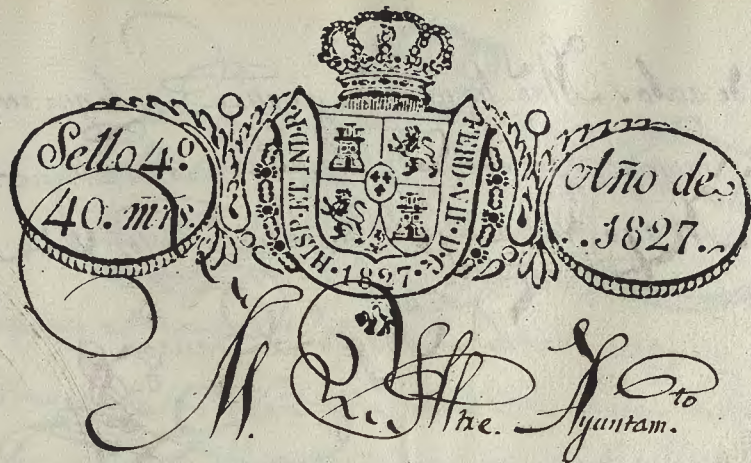 Sello 4º
40. mrs.
HISP·ET IND·R
FERD·VII·D·G·
·1827·
Año de
..1827..
M. Iltre. Ayuntam.to